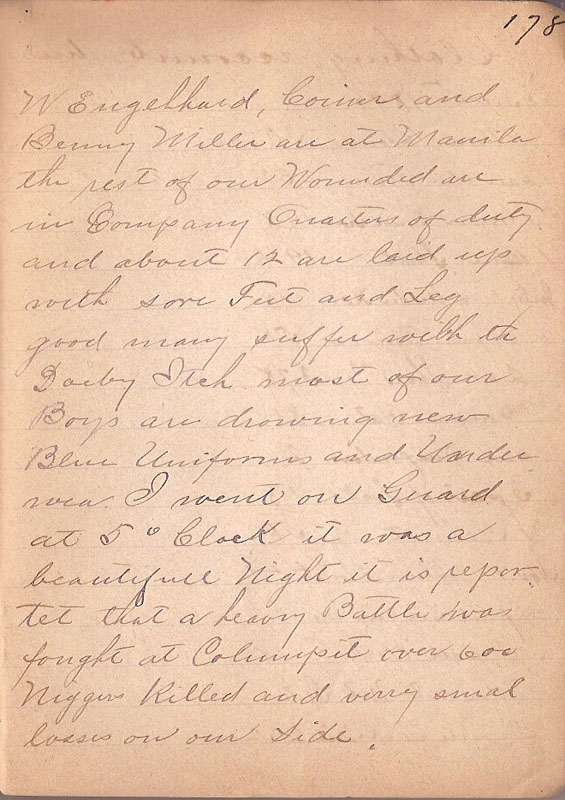 178
W Engelhard, Coiner and
Benny Miller are at Manila
the rest of our Wounded are
in Company Quarters of duty
and about 12 are laid up
with sore Feet and Leg
good many suffer with th
Doeby Itch most of our
Boys are drowing new
Blue Uniforms and Under
wear. I went on Guard
at 5 o Clock it was a
beautifull Night it is repor
tet that a heavy Battle was
fought at Columpit over 600
Niggers Killed and verry smal
losses on our Side.